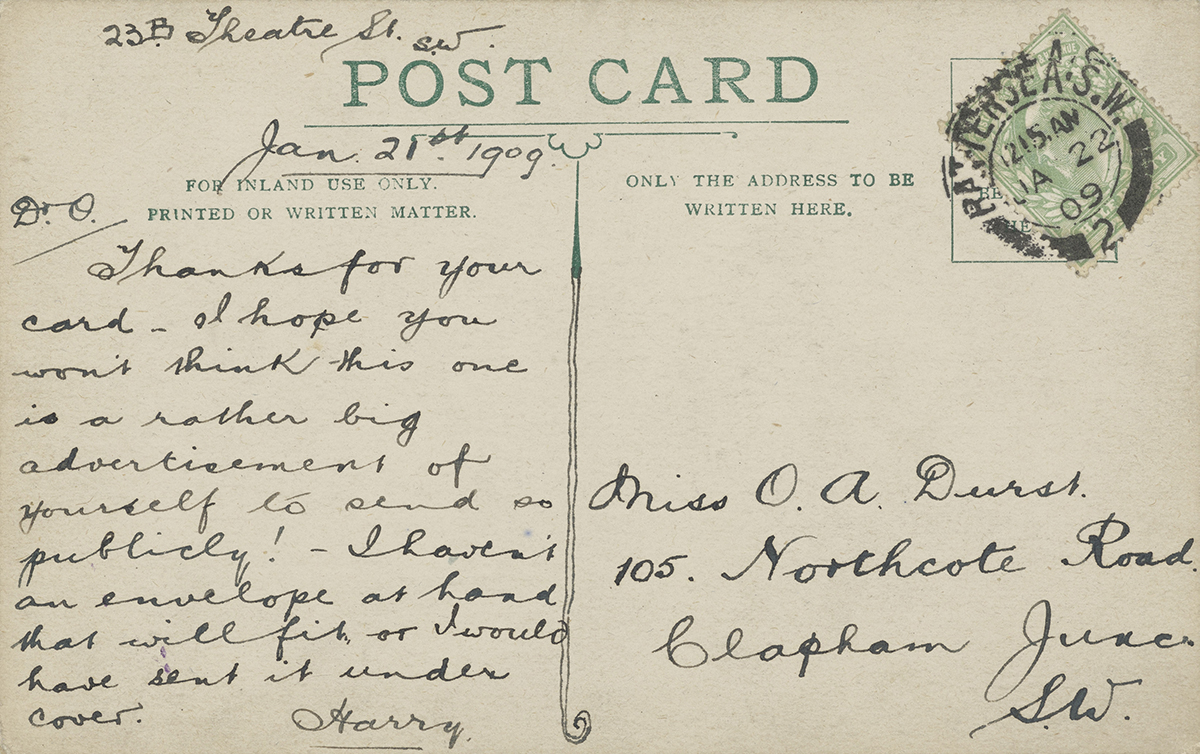 23B Theatre St. S.W.
POST CARD
Jan. 21st. 1909.
FOR INLAND USE ONLY.
PRINTED OR WRITTEN MATTER.
Dr. O.
Thanks for your
card - I hope you
won't think this one
is a rather big
advertisement of
yourself to send so
publicly! - I haven't
an envelope at hand
that will fit, or I would
have sent it under
cover.
Harry.
ONLY THE ADDRESS TO BE
WRITTEN HERE.
BATTERSEA.S.W.
12 15.AM
JA 22
09
2
Miss O. A. Durst.
105. Northcote Road.
Clapham Junc.
S.W.